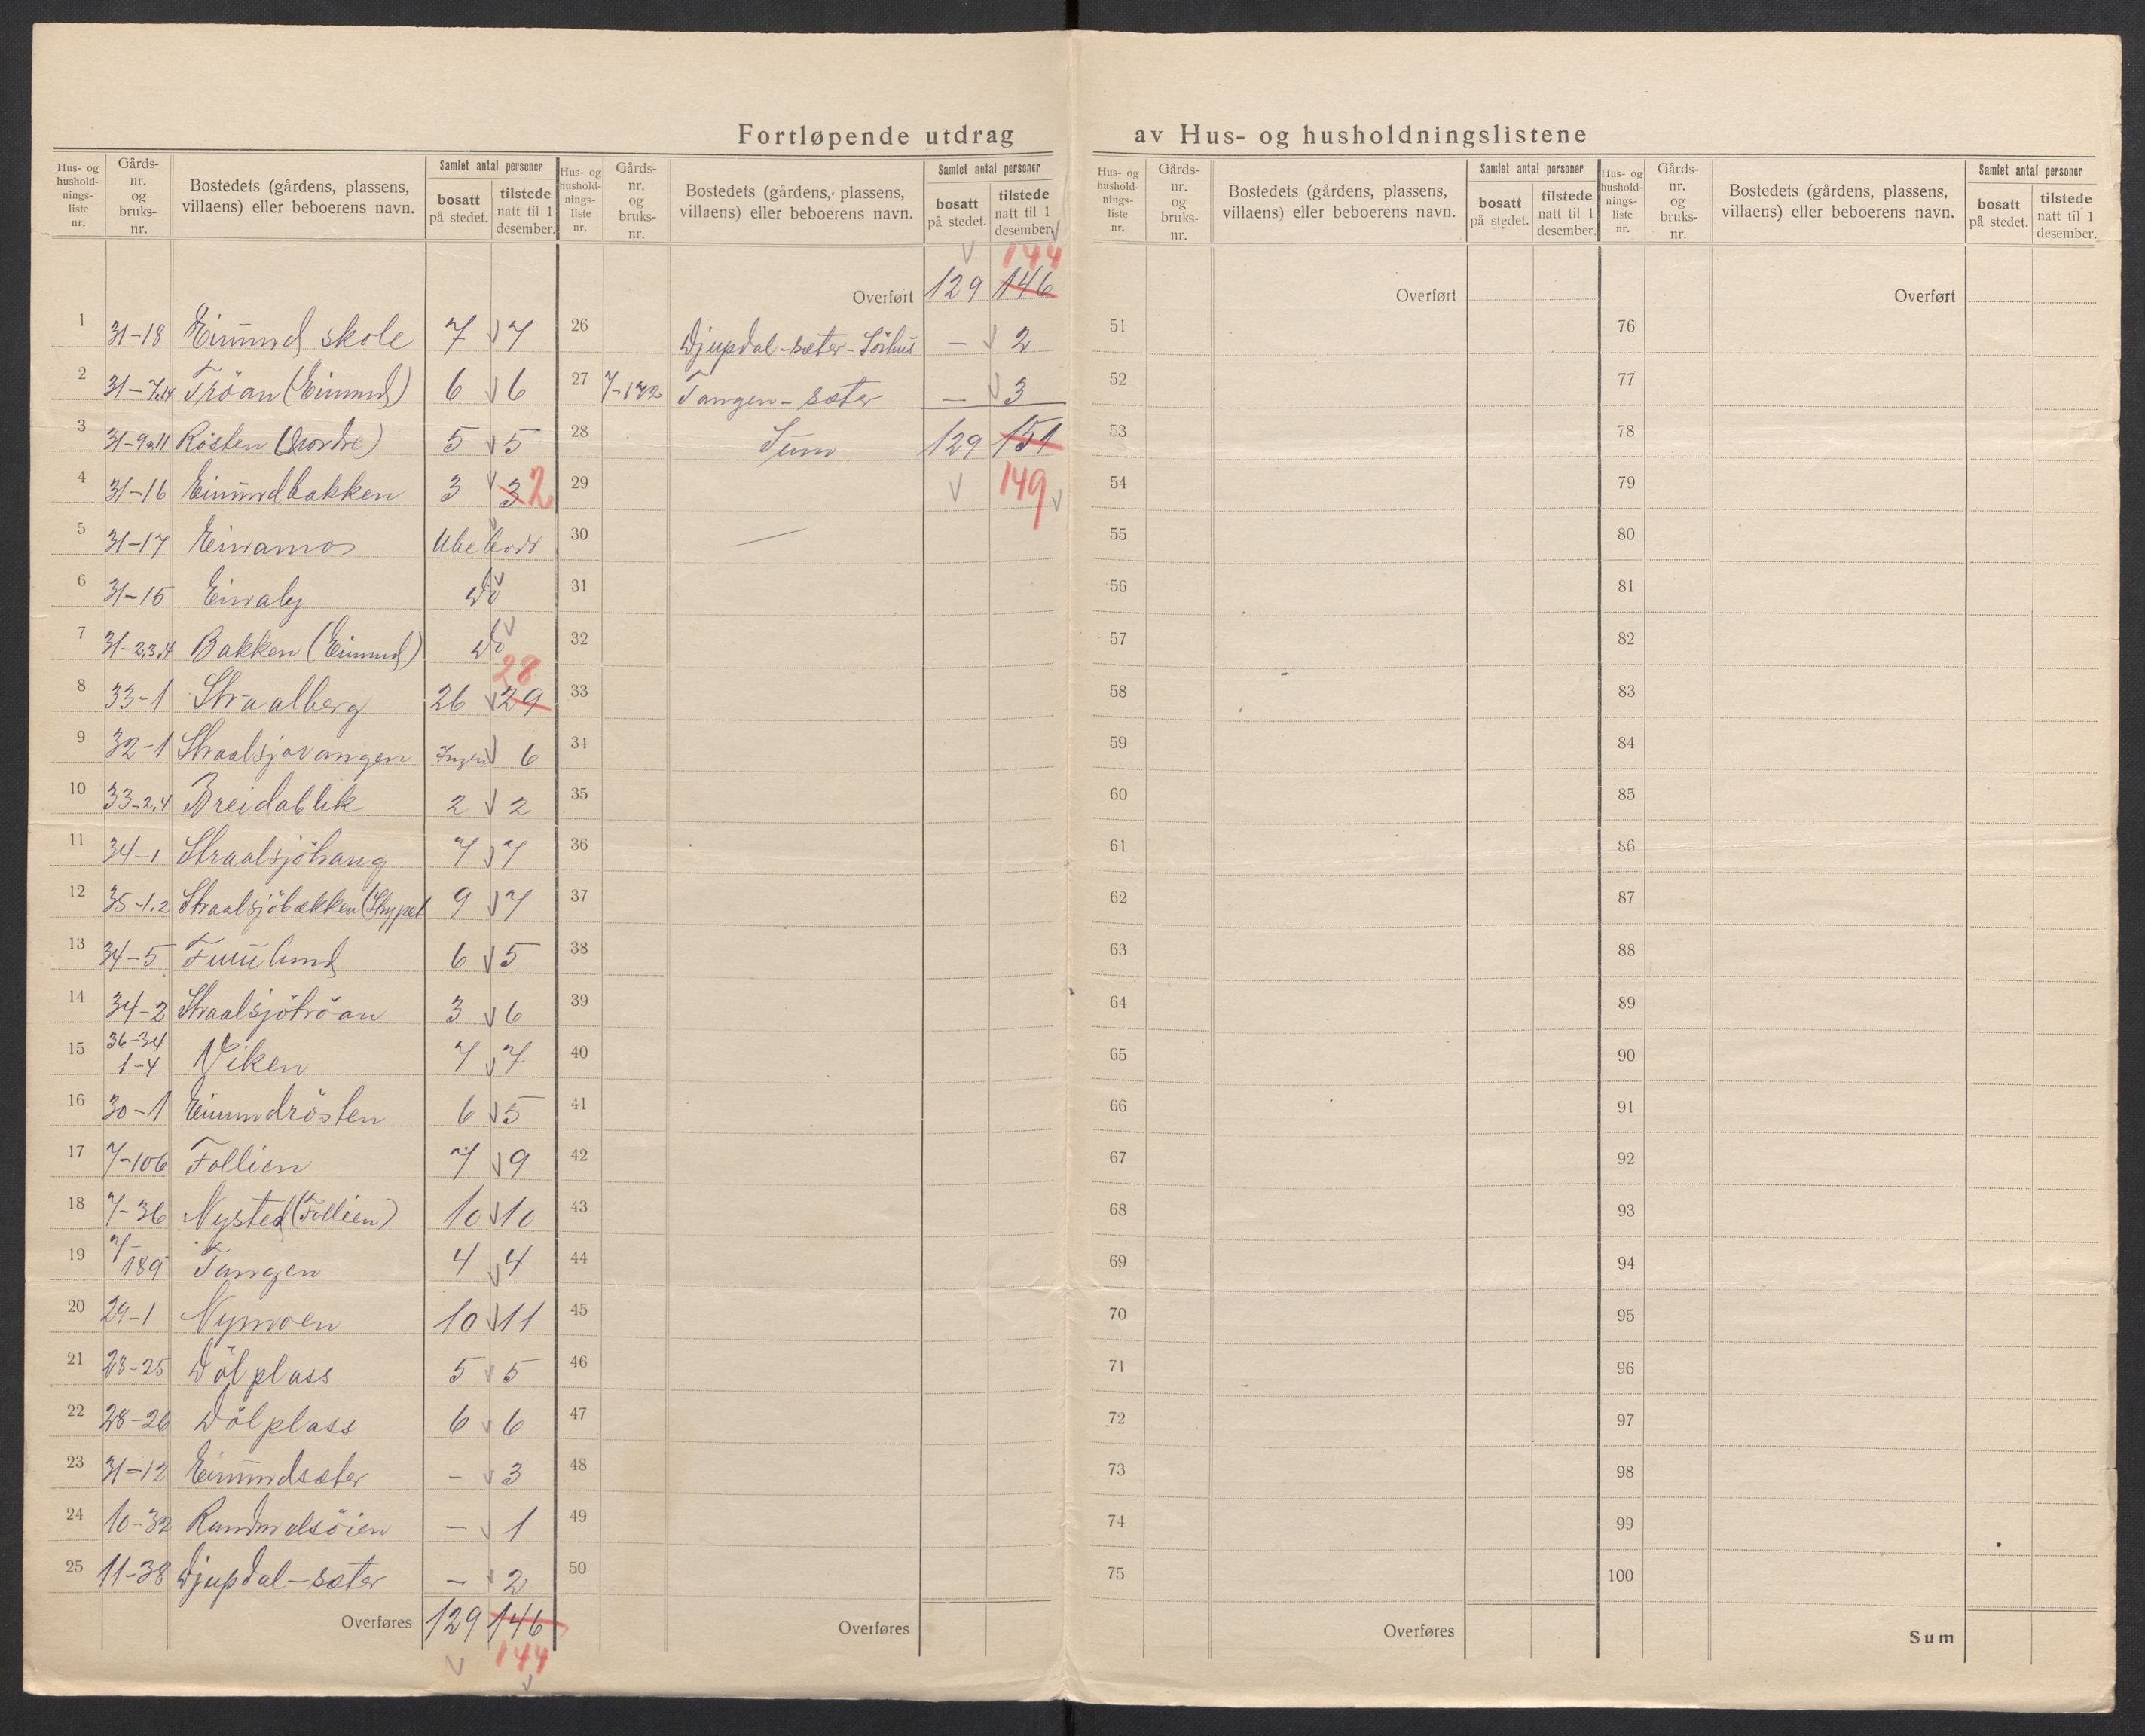 Fortløpende utdrag av Hus- og husholdningslistene
Hus- og hushold-nings-liste nr. Gårds-nr. og bruks-nr. Bostedets (gårdens, plassens, villaens) eller beboerens navn. Samlet antal personer bosatt på stedet. tilstede natt til 1 desember.
1 31-18 Eimund skole 7 7
2 31-7,14 Tröan (Eimund) 6 6
3 31-9,11 Røsten (Nordre) 5 5
4 31-16 Eimundbakken 3 3 2
5 31-17 Einamos Ubebodd
6 31-15 Einaby Do
7 31-2,3,4 Bakken (Eimund) Do
28
8 33-1 Straalberg 26 29
9 32-1 Straalsjøvangen Ingen 6
10 33-2,4 Breidablik 2 2
11 34-1 Straalsjöhaug 7 7
12 35-1,2 Straalsjöbækken 9 7
13 34-5 Furulund 6 5
14 34-2 Straalsjötröan 3 6
15 36-34 1-4 Viken 7 7
16 30-1 Eimundrösten 6 5
17 7-106 Follien 7 9
18 7-36 Nysted (Follien) 10 10
19 7-189 Tangen 4 4
20 29-1 Nymoen 10 11
21 28-25 Dölplass 5 5
22 28-26 Dölplass 6 6
23 31-12 Eimundsæter - 3
24 10-32 Randmelsöien - 1
25 11-38 Djupdal-sæter - 2
Overføres 129 146
144
Hus- og hushold-nings-liste nr. Gårds-nr. og bruks-nr. Bostedets (gårdens, plassens, villaens) eller beboerens navn. Samlet antal personer bosatt på stedet. tilstede natt til 1 desember.
144
Overført 129 146
26 Djupdal-sæter-Sörhus - 2
27 7-172 Tangen-sæter - 3
28 Sum 129 151
29 149
30 —
31
32
33
34
35
36
37
38
39
40
41
42
43
44
45
46
47
48
49
50
Overføres
Hus- og hushold-nings-liste nr. Gårds-nr. og bruks-nr. Bostedets (gårdens, plassens, villaens) eller beboerens navn. Samlet antal personer bosatt på stedet. tilstede natt til 1 desember.
Overført
51
52
53
54
55
56
57
58
59
60
61
62
63
64
65
66
67
68
69
70
71
72
73
74
75
Overføres
Hus- og hushold-nings-liste nr. Gårds-nr. og bruks-nr. Bostedets (gårdens, plassens, villaens) eller beboerens navn. Samlet antal personer bosatt på stedet. tilstede natt til 1 desember.
Overført
76
77
78
79
80
81
82
83
84
85
86
87
88
89
90
91
92
93
94
95
96
97
98
99
100
Sum